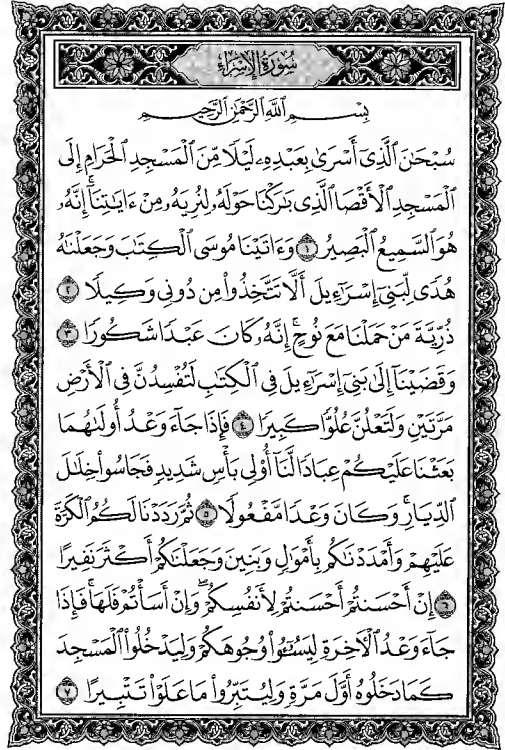 سُورَةُ الإِسْرَاءِ
بِسْمِ ٱللَّهِ ٱلرَّحْمَٰنِ ٱلرَّحِيمِ
سُبْحَٰنَ ٱلَّذِىٓ أَسْرَىٰ بِعَبْدِهِۦ لَيْلًا مِّنَ ٱلْمَسْجِدِ ٱلْحَرَامِ إِلَى
ٱلْمَسْجِدِ ٱلْأَقْصَا ٱلَّذِى بَٰرَكْنَا حَوْلَهُۥ لِنُرِيَهُۥ مِنْ ءَايَٰتِنَآ ۚ إِنَّهُۥ
هُوَ ٱلسَّمِيعُ ٱلْبَصِيرُ ١ وَءَاتَيْنَا مُوسَى ٱلْكِتَٰبَ وَجَعَلْنَٰهُ
هُدًى لِّبَنِىٓ إِسْرَٰٓءِيلَ أَلَّا تَتَّخِذُوا۟ مِن دُونِى وَكِيلًا ٢
ذُرِّيَّةَ مَنْ حَمَلْنَا مَعَ نُوحٍ ۚ إِنَّهُۥ كَانَ عَبْدًا شَكُورًا ٣
وَقَضَيْنَآ إِلَىٰ بَنِىٓ إِسْرَٰٓءِيلَ فِى ٱلْكِتَٰبِ لَتُفْسِدُنَّ فِى ٱلْأَرْضِ
مَرَّتَيْنِ وَلَتَعْلُنَّ عُلُوًّا كَبِيرًا ٤ فَإِذَا جَآءَ وَعْدُ أُولَىٰهُمَا
بَعَثْنَا عَلَيْكُمْ عِبَادًا لَّنَآ أُو۟لِى بَأْسٍ شَدِيدٍ فَجَاسُوا۟ خِلَٰلَ
ٱلدِّيَارِ ۚ وَكَانَ وَعْدًا مَّفْعُولًا ٥ ثُمَّ رَدَدْنَا لَكُمُ ٱلْكَرَّةَ
عَلَيْهِمْ وَأَمْدَدْنَٰكُم بِأَمْوَٰلٍ وَبَنِينَ وَجَعَلْنَٰكُمْ أَكْثَرَ نَفِيرًا
٦ إِنْ أَحْسَنتُمْ أَحْسَنتُمْ لِأَنفُسِكُمْ ۖ وَإِنْ أَسَأْتُمْ فَلَهَا ۚ فَإِذَا
جَآءَ وَعْدُ ٱلْءَاخِرَةِ لِيَسُۥٓـُٔوا۟ وُجُوهَكُمْ وَلِيَدْخُلُوا۟ ٱلْمَسْجِدَ
كَمَا دَخَلُوهُ أَوَّلَ مَرَّةٍ وَلِيُتَبِّرُوا۟ مَا عَلَوْا۟ تَتْبِيرًا ٧